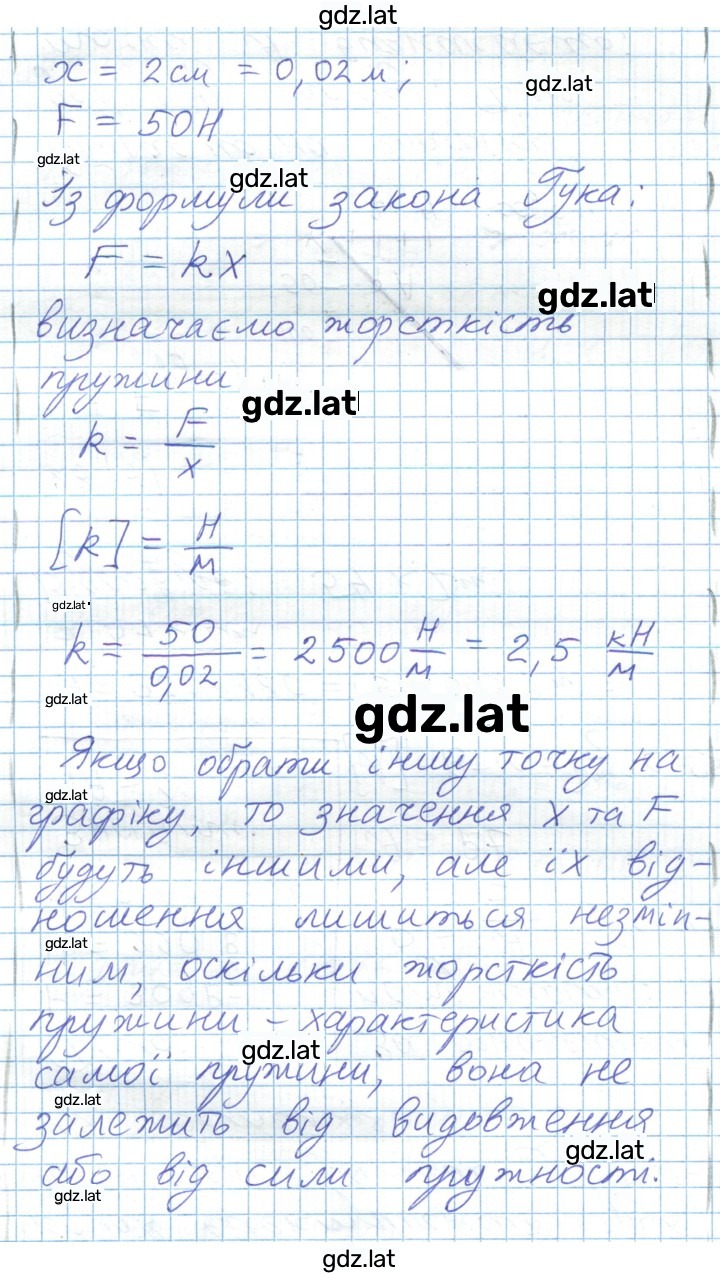 gdz.lat
x = 2 см = 0,02 м;
gdz.lat
F = 50 Н
gdz.lat
gdz.lat
Із формули закона Гука:
F = kx
gdz.lat
визначаємо жорсткість
пружини
gdz.lat
k = F/x
[k] = Н/м
gdz.lat
k = 50/0,02 = 2500 Н/м = 2,5 кН/м
gdz.lat
gdz.lat
Якщо обрати іншу точку на
gdz.lat
графіку, то значення x та F
будуть іншими, але їх від-
ношення лишиться незмін-
gdz.lat
ним, оскільки жорсткість
пружини – характеристика
gdz.lat
самої пружини, вона не
gdz.lat
залежить від видовження
gdz.lat
або від сили пружності.
gdz.lat
gdz.lat